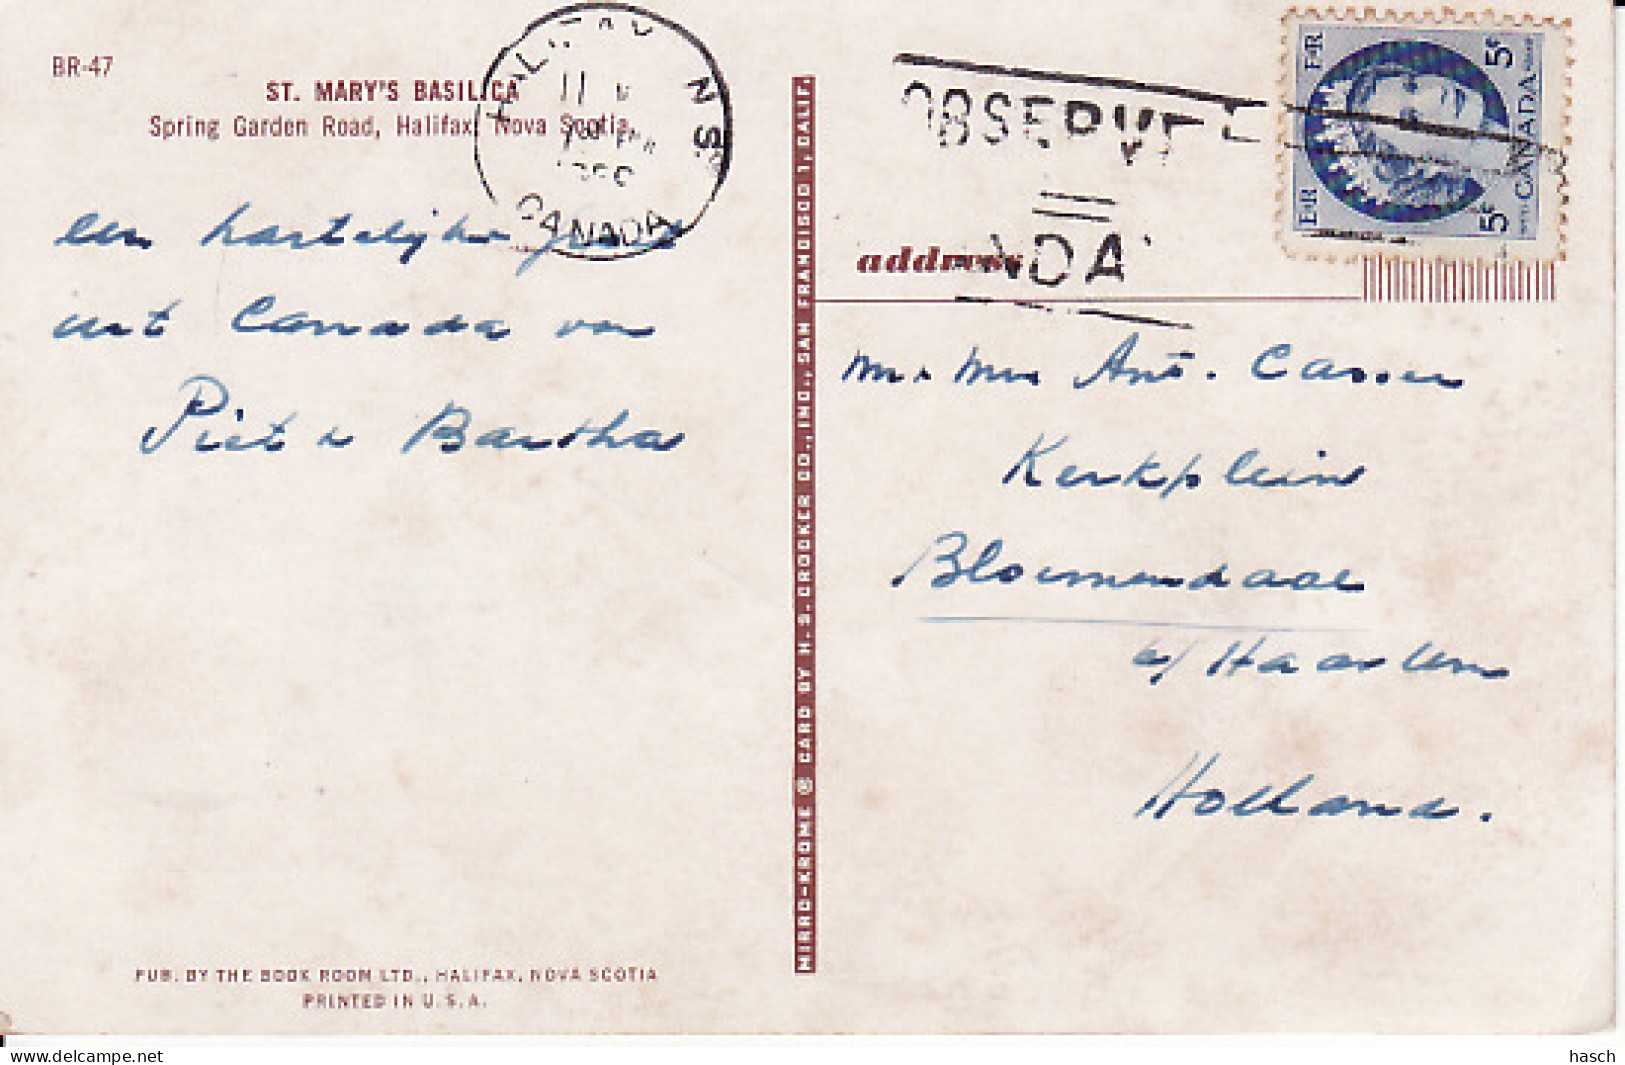 BR-47
ST. MARY'S BASILICA
Spring Garden Road, Halifax, Nova Scotia.
een hartelijke groet
uit Canada van
Piet & Bartha
PUB. BY THE BOOK ROOM LTD., HALIFAX, NOVA SCOTIA
PRINTED IN U.S.A.
MIRRO-KROME ® CARD BY H. S. CROCKER CO., INC., SAN FRANCISCO 1, CALIF.
HALIFAX N.S.
11
CANADA
OBSERVE
NDA
E II R
E II R
5¢
5¢
CANADA
address
Mr. Mrs Ant. Casser
Kerkplein
Bloemendaal
b/ Haarlem
Holland.
een kaartje voor 2022
hasch